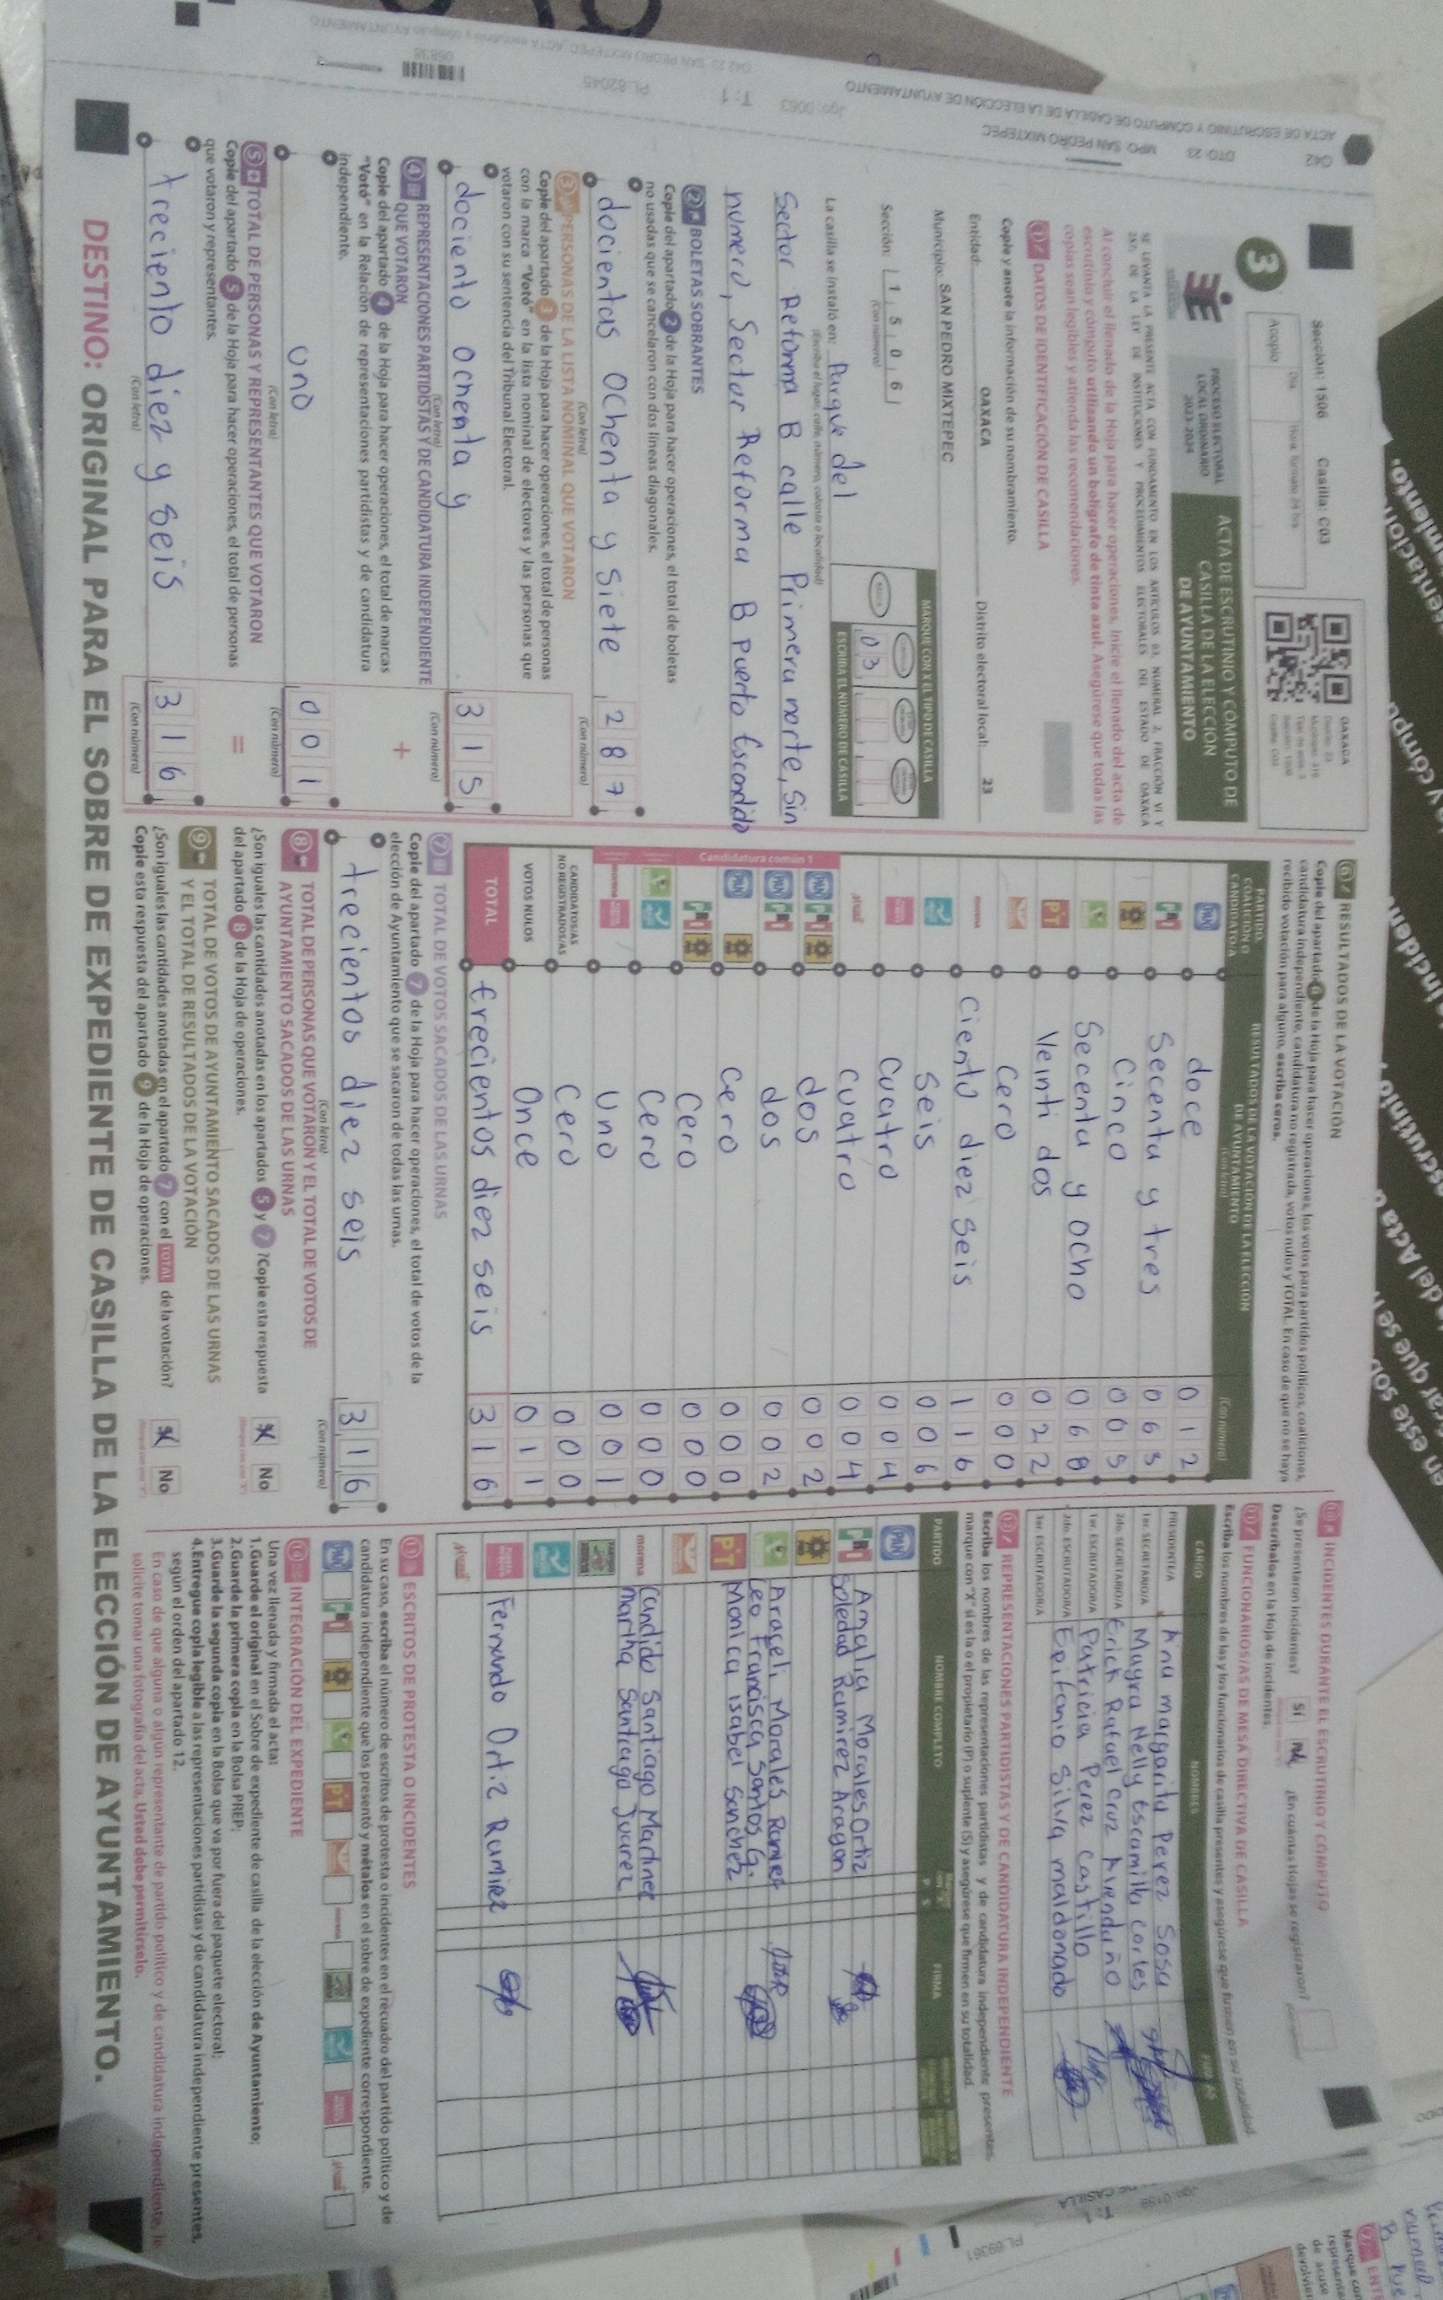 ACTA DE ESCRUTINIO Y CÓMPUTO DE CASILLA DE LA ELECCIÓN DE AYUNTAMIENTO
042 DTO: 23 MPO: SAN PEDRO MIXTEPEC
Sección: 1506 Casilla: C03
Acopio
3
PROCESO ELECTORAL
LOCAL ORDINARIO
2023-2024
ACTA DE ESCRUTINIO Y CÓMPUTO DE
CASILLA DE LA ELECCIÓN
DE AYUNTAMIENTO
SE LEVANTA LA PRESENTE ACTA CON FUNDAMENTO EN LOS ARTÍCULOS
Al concluir el llenado de la Hoja para hacer operaciones, inicie el llenado del acta de
escrutinio y cómputo utilizando un bolígrafo de tinta azul. Asegúrese que todas las
copias sean legibles y atienda las recomendaciones.
1 DATOS DE IDENTIFICACIÓN DE CASILLA
Copie y anote la información de su nombramiento.
Entidad: OAXACA Distrito electoral local: 23
Municipio: SAN PEDRO MIXTEPEC
Sección: 1 5 0 6
(Con número)
MARQUE CON X EL TIPO DE CASILLA
03
ESCRIBA EL NÚMERO DE CASILLA
La casilla se instaló en: Parque del
Sector Reforma B calle Primera norte, sin
numero, Sector Reforma B Puerto Escondido
2 BOLETAS SOBRANTES
Copie del apartado 2 de la Hoja para hacer operaciones, el total de boletas
no usadas que se cancelaron con dos líneas diagonales.
docientas ochenta y siete 287
(Con letra) (Con número)
3 PERSONAS DE LA LISTA NOMINAL QUE VOTARON
Copie del apartado 3 de la Hoja para hacer operaciones, el total de personas
con la marca "Votó" en la lista nominal de electores y las personas que
votaron con su sentencia del Tribunal Electoral.
dociento ochenta y 315
(Con letra) (Con número)
4 REPRESENTACIONES PARTIDISTAS Y DE CANDIDATURA INDEPENDIENTE
QUE VOTARON
Copie del apartado 4 de la Hoja para hacer operaciones, el total de marcas
"Votó" en la Relación de representaciones partidistas y de candidatura
independiente.
+
uno 001
(Con letra) (Con número)
5 TOTAL DE PERSONAS Y REPRESENTANTES QUE VOTARON
Copie del apartado 5 de la Hoja para hacer operaciones, el total de personas
que votaron y representantes.
=
treciento diez y seis 316
(Con letra) (Con número)
6 RESULTADOS DE LA VOTACIÓN
Copie del apartado 6 de la Hoja para hacer operaciones, los votos para partidos políticos, coaliciones,
candidatura independiente, candidatura no registrada, votos nulos y TOTAL. En caso de que no se haya
recibido votación para alguno, escriba ceros.
PARTIDO, COALICIÓN O CANDIDATO/A
RESULTADOS DE LA VOTACIÓN DE LA ELECCIÓN
DE AYUNTAMIENTO
(Con letra) (Con número)
PAN doce 012
PRI Secenta y tres 063
Cinco 005
Secenta y ocho 068
PT Veinti dos 022
Cero 000
morena Ciento diez seis 116
Seis 006
Cuatro 004
Cuatro 004
Candidatura común 1
PAN PRI dos 002
PAN PRI dos 002
PAN cero 000
PRI Cero 000
Cero 000
Uno 001
CANDIDATOS/AS
NO REGISTRADOS/AS Cero 000
VOTOS NULOS Once 011
TOTAL trecientos diez seis 316
7 TOTAL DE VOTOS SACADOS DE LAS URNAS
Copie del apartado 7 de la Hoja para hacer operaciones, el total de votos de la
elección de Ayuntamiento que se sacaron de todas las urnas.
trecientos diez seis 316
(Con letra) (Con número)
8 TOTAL DE PERSONAS QUE VOTARON Y EL TOTAL DE VOTOS DE
AYUNTAMIENTO SACADOS DE LAS URNAS
¿Son iguales las cantidades anotadas en los apartados 5 y 7? Copie esta respuesta
del apartado 8 de la Hoja de operaciones.
No
9 TOTAL DE VOTOS DE AYUNTAMIENTO SACADOS DE LAS URNAS
Y EL TOTAL DE RESULTADOS DE LA VOTACIÓN
¿Son iguales las cantidades anotadas en el apartado 7 con el TOTAL de la votación?
Copie esta respuesta del apartado 9 de la Hoja de operaciones.
No
10 INCIDENTES DURANTE EL ESCRUTINIO Y CÓMPUTO
¿Se presentaron incidentes? Sí ¿En cuántas Hojas se registraron?
Descríbalos en la Hoja de incidentes.
11 FUNCIONARIOS/AS DE MESA DIRECTIVA DE CASILLA
Escriba los nombres de las y los funcionarios de casilla presentes y asegúrese que firmen en su totalidad
CARGO NOMBRES
PRESIDENTE/A Ana margarita Perez Sosa
1er. SECRETARIO/A Mayra Nelly Escamilla cortes
2do. SECRETARIO/A Erick Rafael Cruz Avendaño
1er. ESCRUTADOR/A Patricia Perez castillo
2do. ESCRUTADOR/A Epifanio Silva maldonado
3er. ESCRUTADOR/A
12 REPRESENTACIONES PARTIDISTAS Y DE CANDIDATURA INDEPENDIENTE
Escriba los nombres de las representaciones partidistas y de candidatura independiente presentes,
marque con "X" si es la o el propietario (P) o suplente (S) y asegúrese que firmen en su totalidad.
PARTIDO NOMBRE COMPLETO P S FIRMA
PAN
PRI Amalia Morales Ortiz
Soledad Ramirez Aragon
Araceli Morales
Leo Francisca Santos G.
PT Monica isabel Sanchez
morena Candido Santiago Martinez
martha Santiago Juarez
Fernando Ortiz Ramirez
13 ESCRITOS DE PROTESTA O INCIDENTES
En su caso, escriba el número de escritos de protesta o incidentes en el recuadro del partido político y de
candidatura independiente que los presentó y métalos en el sobre de expediente correspondiente.
14 INTEGRACIÓN DEL EXPEDIENTE
Una vez llenada y firmada el acta:
1.Guarde el original en el Sobre de expediente de casilla de la elección de Ayuntamiento;
2.Guarde la primera copia en la Bolsa PREP;
3.Guarde la segunda copia en la Bolsa que va por fuera del paquete electoral;
4.Entregue copia legible a las representaciones partidistas y de candidatura independiente presentes,
según el orden del apartado 12.
En caso de que alguna o algún representante de partido político y de candidatura independiente, le
solicite tomar una fotografía del acta, Usted debe permitírselo.
DESTINO: ORIGINAL PARA EL SOBRE DE EXPEDIENTE DE CASILLA DE LA ELECCIÓN DE AYUNTAMIENTO.